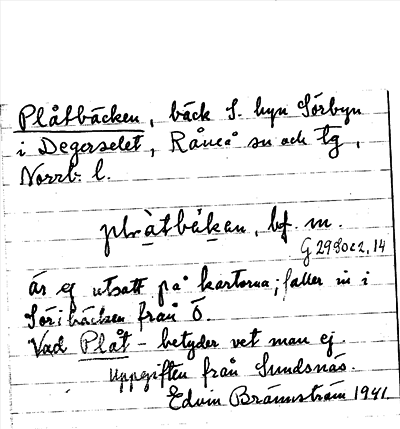 Plåtbäcken, bäck S. byn Sörbyn
i Degerselet, Råneå sn och tg,
Norrb. l.
plàtbäkan, bf. m.
G 2980c2, 14
Är ej utsatt på kartorna; faller in i
Söribäcken från Ö.
Vad Plåt - betyder vet man ej.
Uppgiften från Sundsnäs.
Edvin Brännström 1941